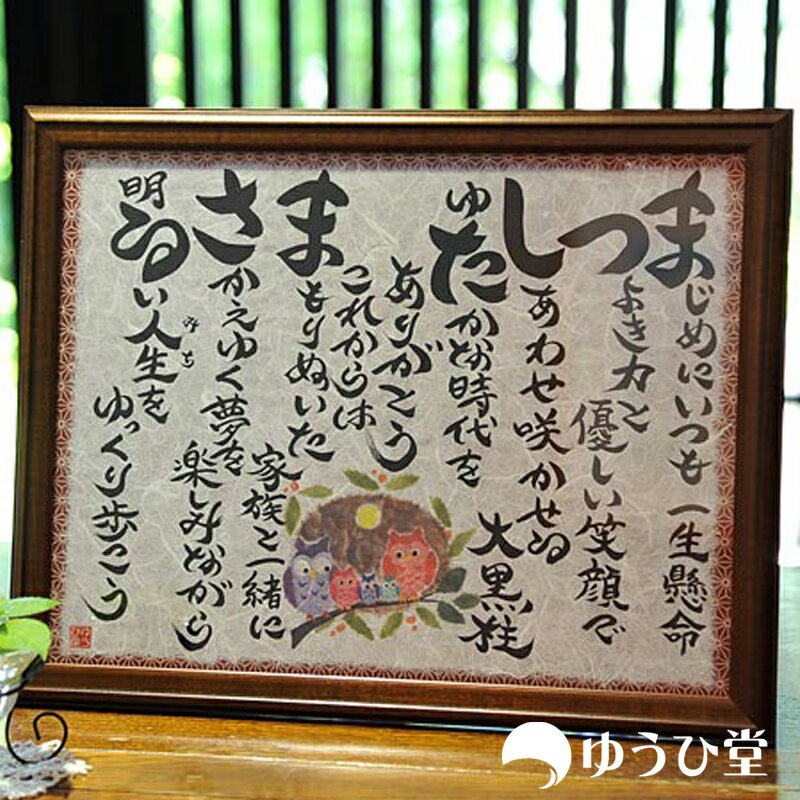 まじめにいつも一生懸命
つよき力と
優しい笑顔で
しあわせ咲かせる
大黒柱
ゆたかな時代を
ありがとう
これからは
まもりぬいた
家族と一緒に
さかえゆく夢を
楽しみながら
明るい人生を
みち
ゆっくり歩こう
ゆうひ堂